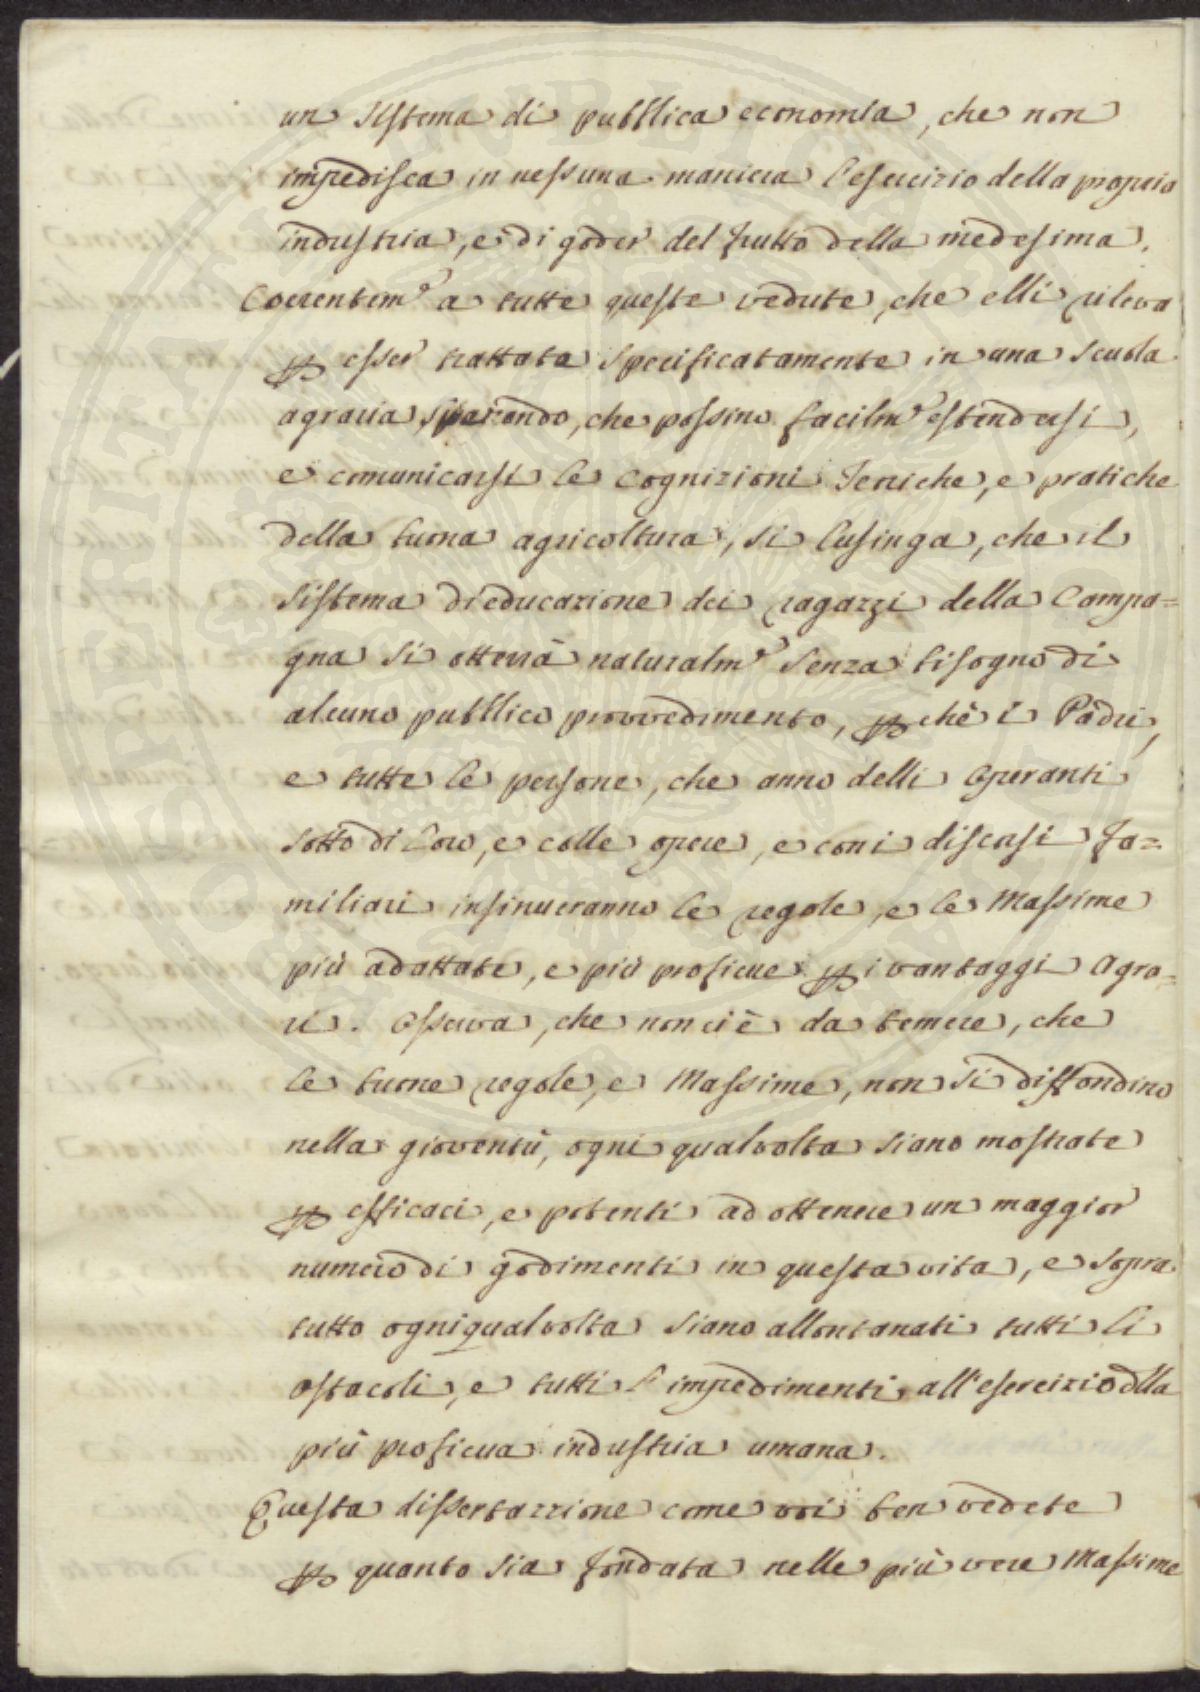 un sistema di pubblica economia, che non
impedisca in nessuna maniera l'esercizio della propria
industria, e di goder del frutto della medesima.
Coerentem.e a tutte queste vedute, che elli rileva
p esser trattate specificatamente in una scuola
agraria, sperando, che possino facilm.e estendersi,
e comunicarsi le cognizioni Teoriche, e pratiche
della buona agricoltura, si lusinga, che il
sistema di educazione dei ragazzi della Campa=
gna si otterrà naturalm.e senza bisogno di
alcuno pubblico provvedimento, pchè i Padri,
e tutte le persone, che anno delli Operanti
sotto di loro, e colle opere, e con i discorsi fa=
miliari insinueranno le regole, e le Massime
più adattate, e più proficue p i vantaggi Agra=
ri. Osserva, che non ci è da temere, che
le buone regole, e Massime, non si diffondino
nella gioventù, ogni qualvolta siano mostrate
p efficaci, e potenti ad ottenere un maggior
numero di godimenti in questa vita, e sopra
tutto ogniqualvolta siano allontanati tutti li
ostacoli, e tutti l'impedimenti all'esercizio dlla
più proficua industria umana.
Questa dissertazzione come voi ben vedete
p quanto sia fondata nelle più vere Massime
PROSPERITATIS PUBLICAE AUG